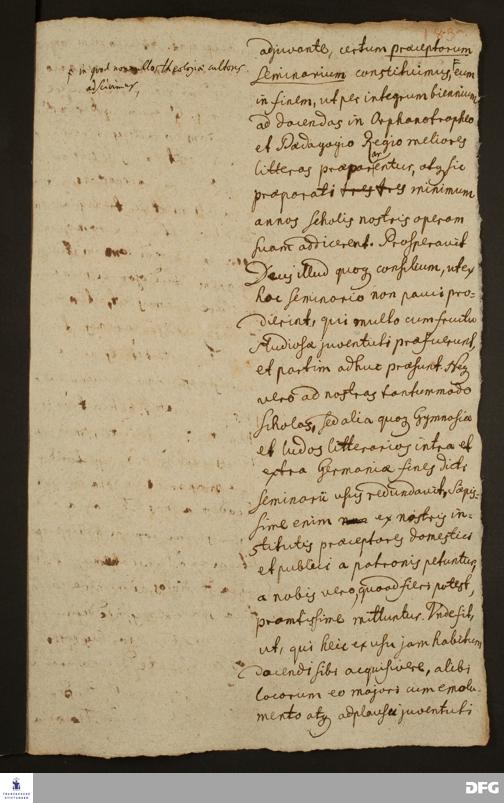 adjuvante, certum præceptorum
F in quod nonnullos theologiæ cultores
adscivimus,
Seminarium constituimus, F eum
in finem, ut per integrum biennium
ad docendas in Orphanotropheo
et Pædagogio Regio meliores
litteras præparentur, atq sic
præparati tres tres minimum
annos scholis nostris operam
suam addicerent. Prosperavit
Deus illud quoq consilium, ut ex
hoc seminario non pauci pro-
dierint, qui multo cum fructu
studiosæ juventuti præfuerunt,
et partim adhuc præsunt. Neq
vero ad nostras tantummodo
scholas, sed alia quoq Gymnasia
et ludos litterarios intra et
extra Germaniæ fines dicti
seminarii usus redundavit, Sæpis-
sime enim ex nostris in-
stitutis præceptores domestici
et publici a patronis petuntur,
a nobis vero, quoad fieri potest,
promtissime mittuntur. Unde fit,
ut, qui heic ex usu jam habitum
docendi sibi acquisivere, alibi
locorum eo majori cum emolu-
mento atq adplausu juventuti
FRANCKESCHE
STIFTUNGEN
DFG